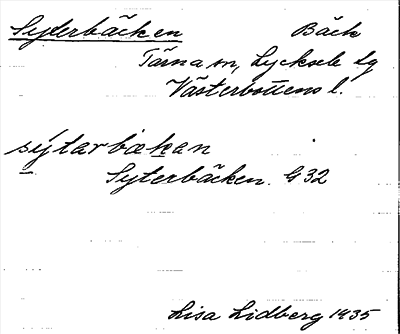 Syterbäcken Bäck
Tärna sn, Lycksele lg
Västerbottens l.
sy̆tarbækan
Syterbäcken. G 32
Lisa Lidberg 1935